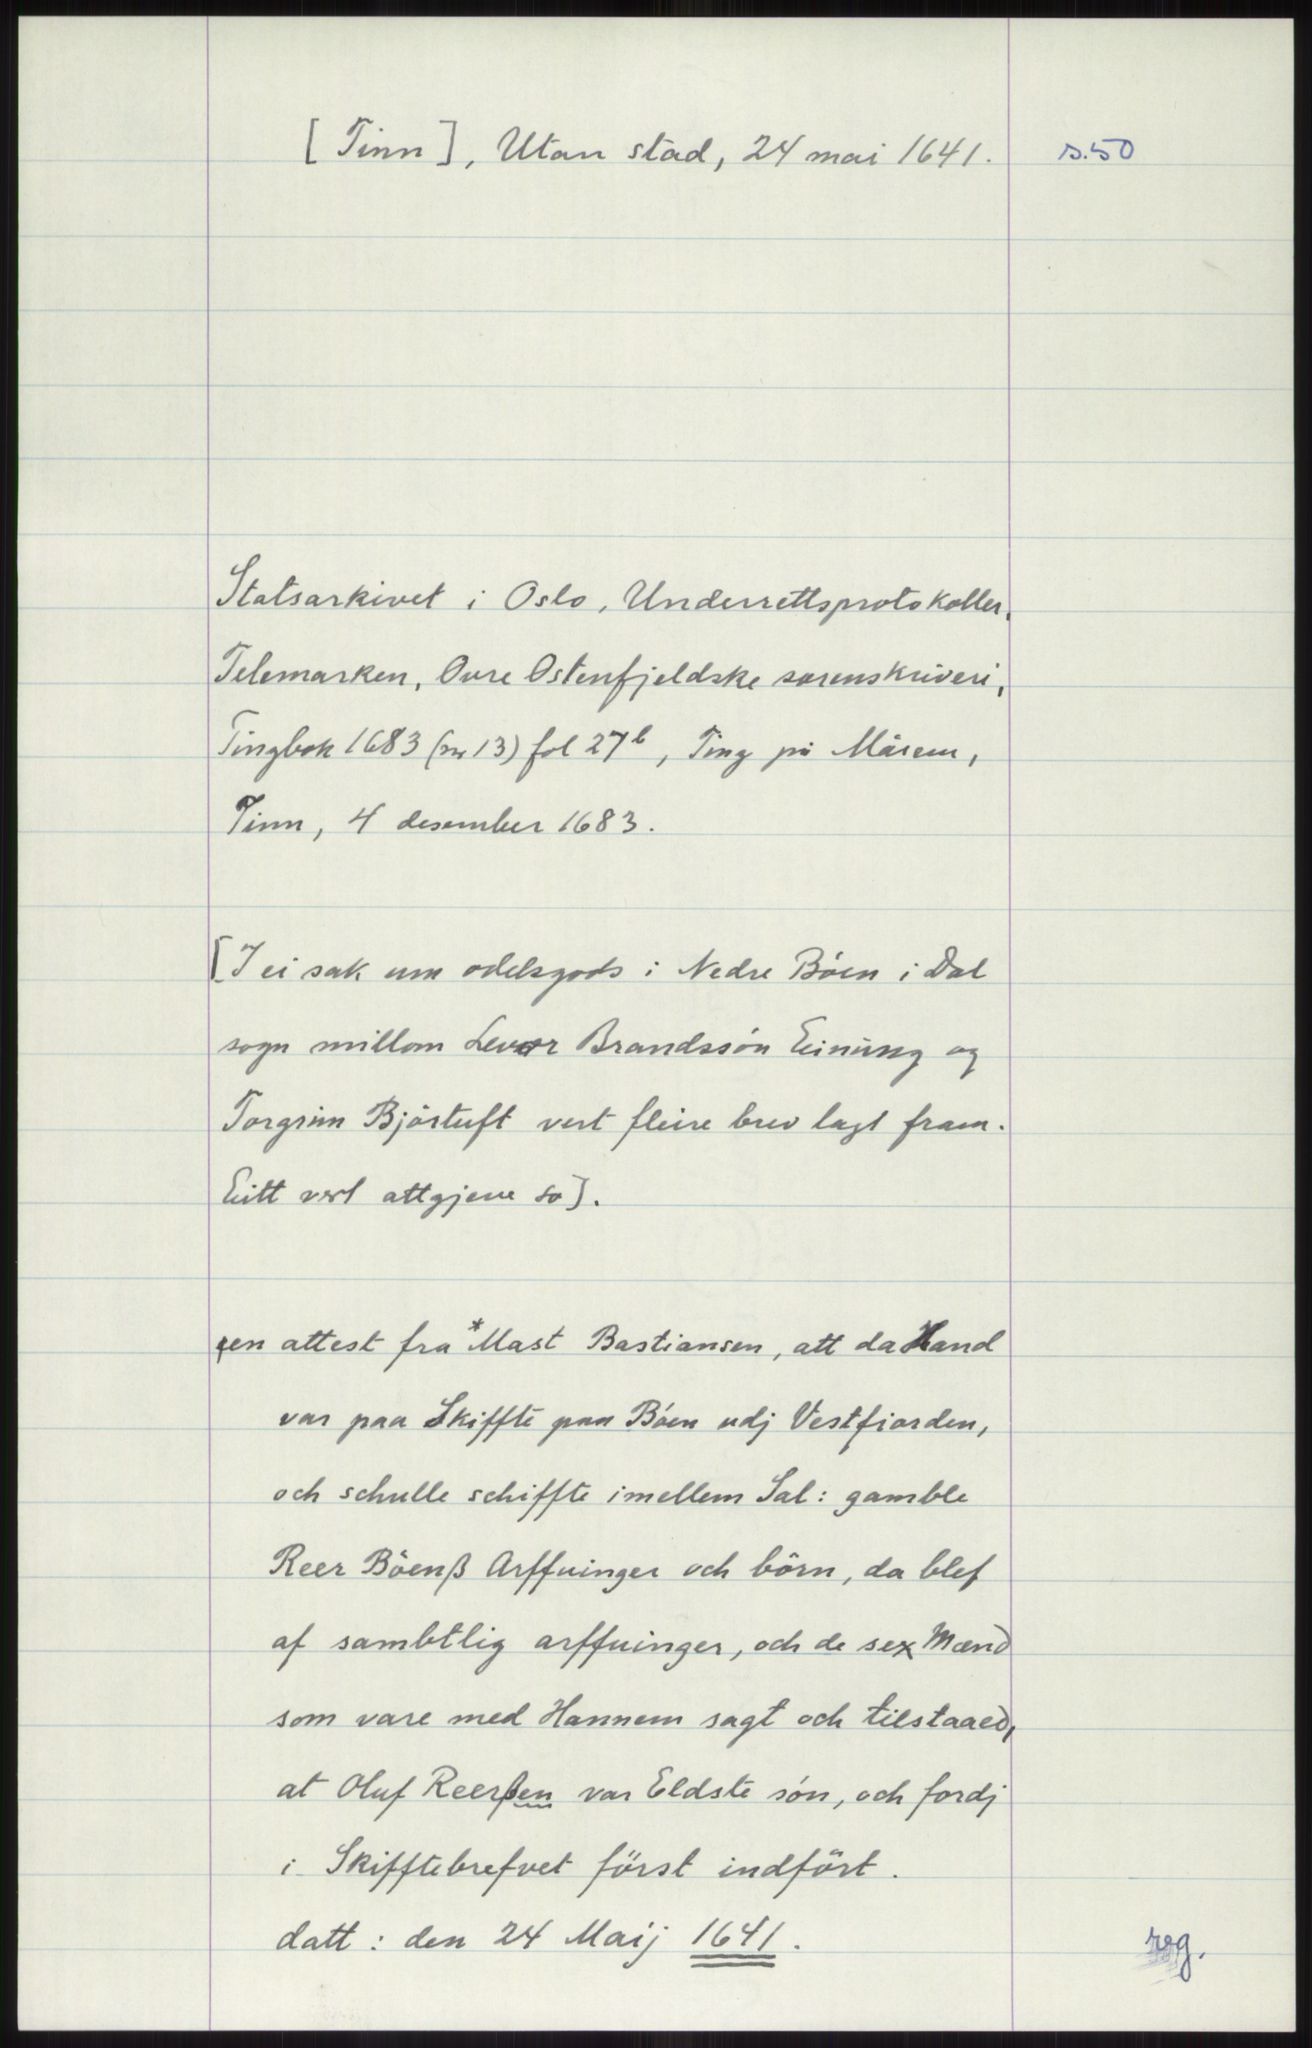 [Tinn], Utan stad, 24 mai 1641. s.50
Statsarkivet i Oslo, Underrettsprotokoller,
Telemarken, Øvre Østenfjeldske sorenskriveri,
Tingbok 1683 (nr 13) fol 27b, Ting på Mårem,
Tinn, 4 desember 1683.
[I ei sak um odelsgods i Nedre Bóen i Dal
sogn millom Levor Brandssón Einúng og
Torgrim Bjórtuft vert fleire brev lagt fram.
Eitt vert attgjeve so].
en attest fra *Mast Bastiansen, att da Hand
var paa Skiffte paa Bóen udj Vestfiorden,
och schulle schiffte imellem Sal: gamble
Reer Böenß Arffuinger och börn, da blef
af sambtlig arffuinger, och de sex Mænd
som vare med Hannem sagt och tilstaaed,
at Oluf Reerßen var Eldste són, och fordj
i Skifftebrefvet först indfört.
datt: den 24 Maij 1641.
reg.